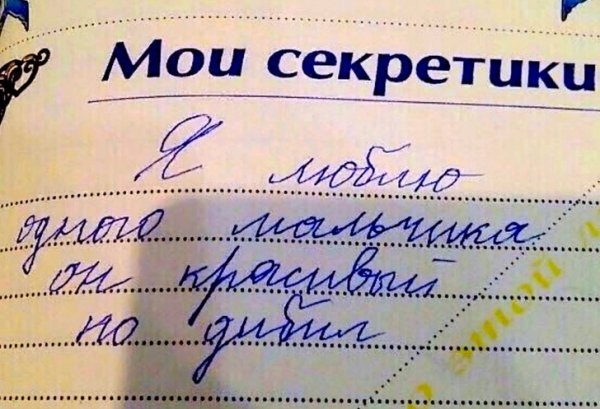 Мои секретики
Я люблю
одного мальчика
он красивый
но дибил